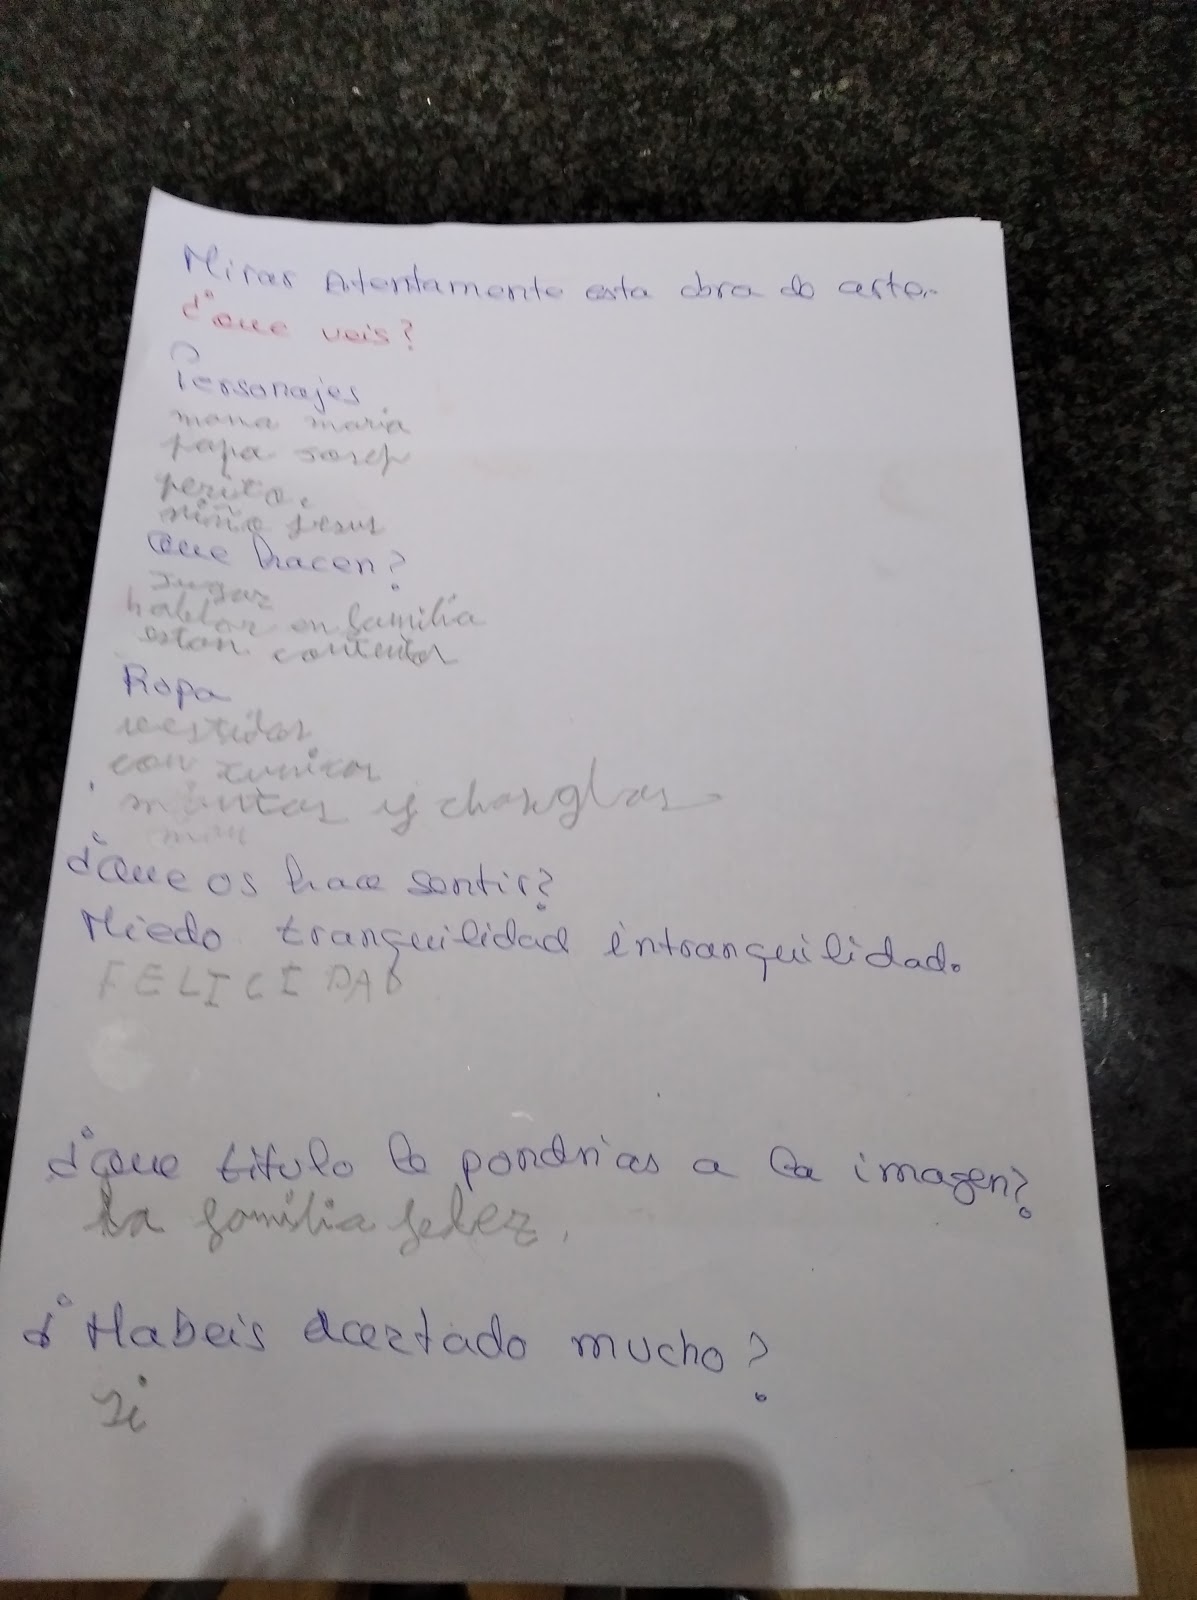 Miras Atentamente esta obra de arte.
¿que veis?
Personajes
mama maria
papa Josep
perito.
niño jesus
que hacen?
Jugar
hablar en familia
estan contentos
Ropa
vestidos
con tunicas
mantas y changlas
¿que os hace sentir?
Miedo tranquilidad intranquilidad.
FELICIDAD
¿que titulo le pondrias a la imagen?
La familia feliz.
¿Habeis acertado mucho?
si